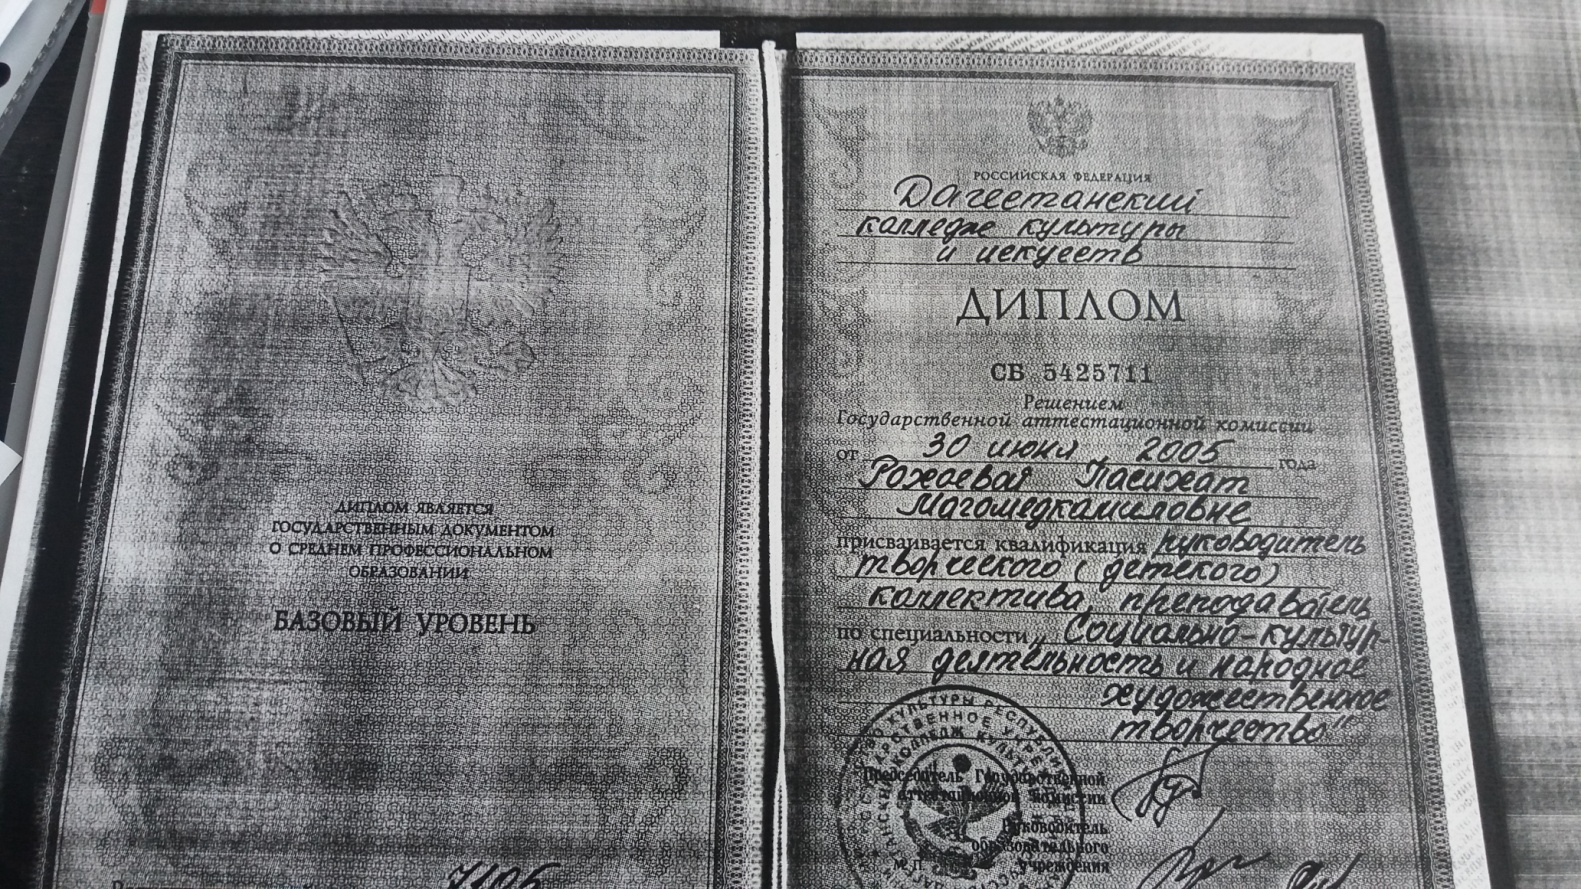 ДИПЛОМ ЯВЛЯЕТСЯ
ГОСУДАРСТВЕННЫМ ДОКУМЕНТОМ
О СРЕДНЕМ ПРОФЕССИОНАЛЬНОМ
ОБРАЗОВАНИИ
БАЗОВЫЙ УРОВЕНЬ
РОССИЙСКАЯ ФЕДЕРАЦИЯ
Дагестанский
колледж культуры
и искусств
ДИПЛОМ
СБ 5425711
Решением
Государственной аттестационной комиссии
от 30 июня 2005 года
Рожаевой Пасихат
Магомедкамиловне
присваивается квалификация руководитель
творческого (детского)
коллектива, преподаватель
по специальности „Социально-культур-
ная деятельность и народное
художественное
творчество"
Председатель Государственной
аттестационной комиссии
Руководитель
образовательного
учреждения
М.П.